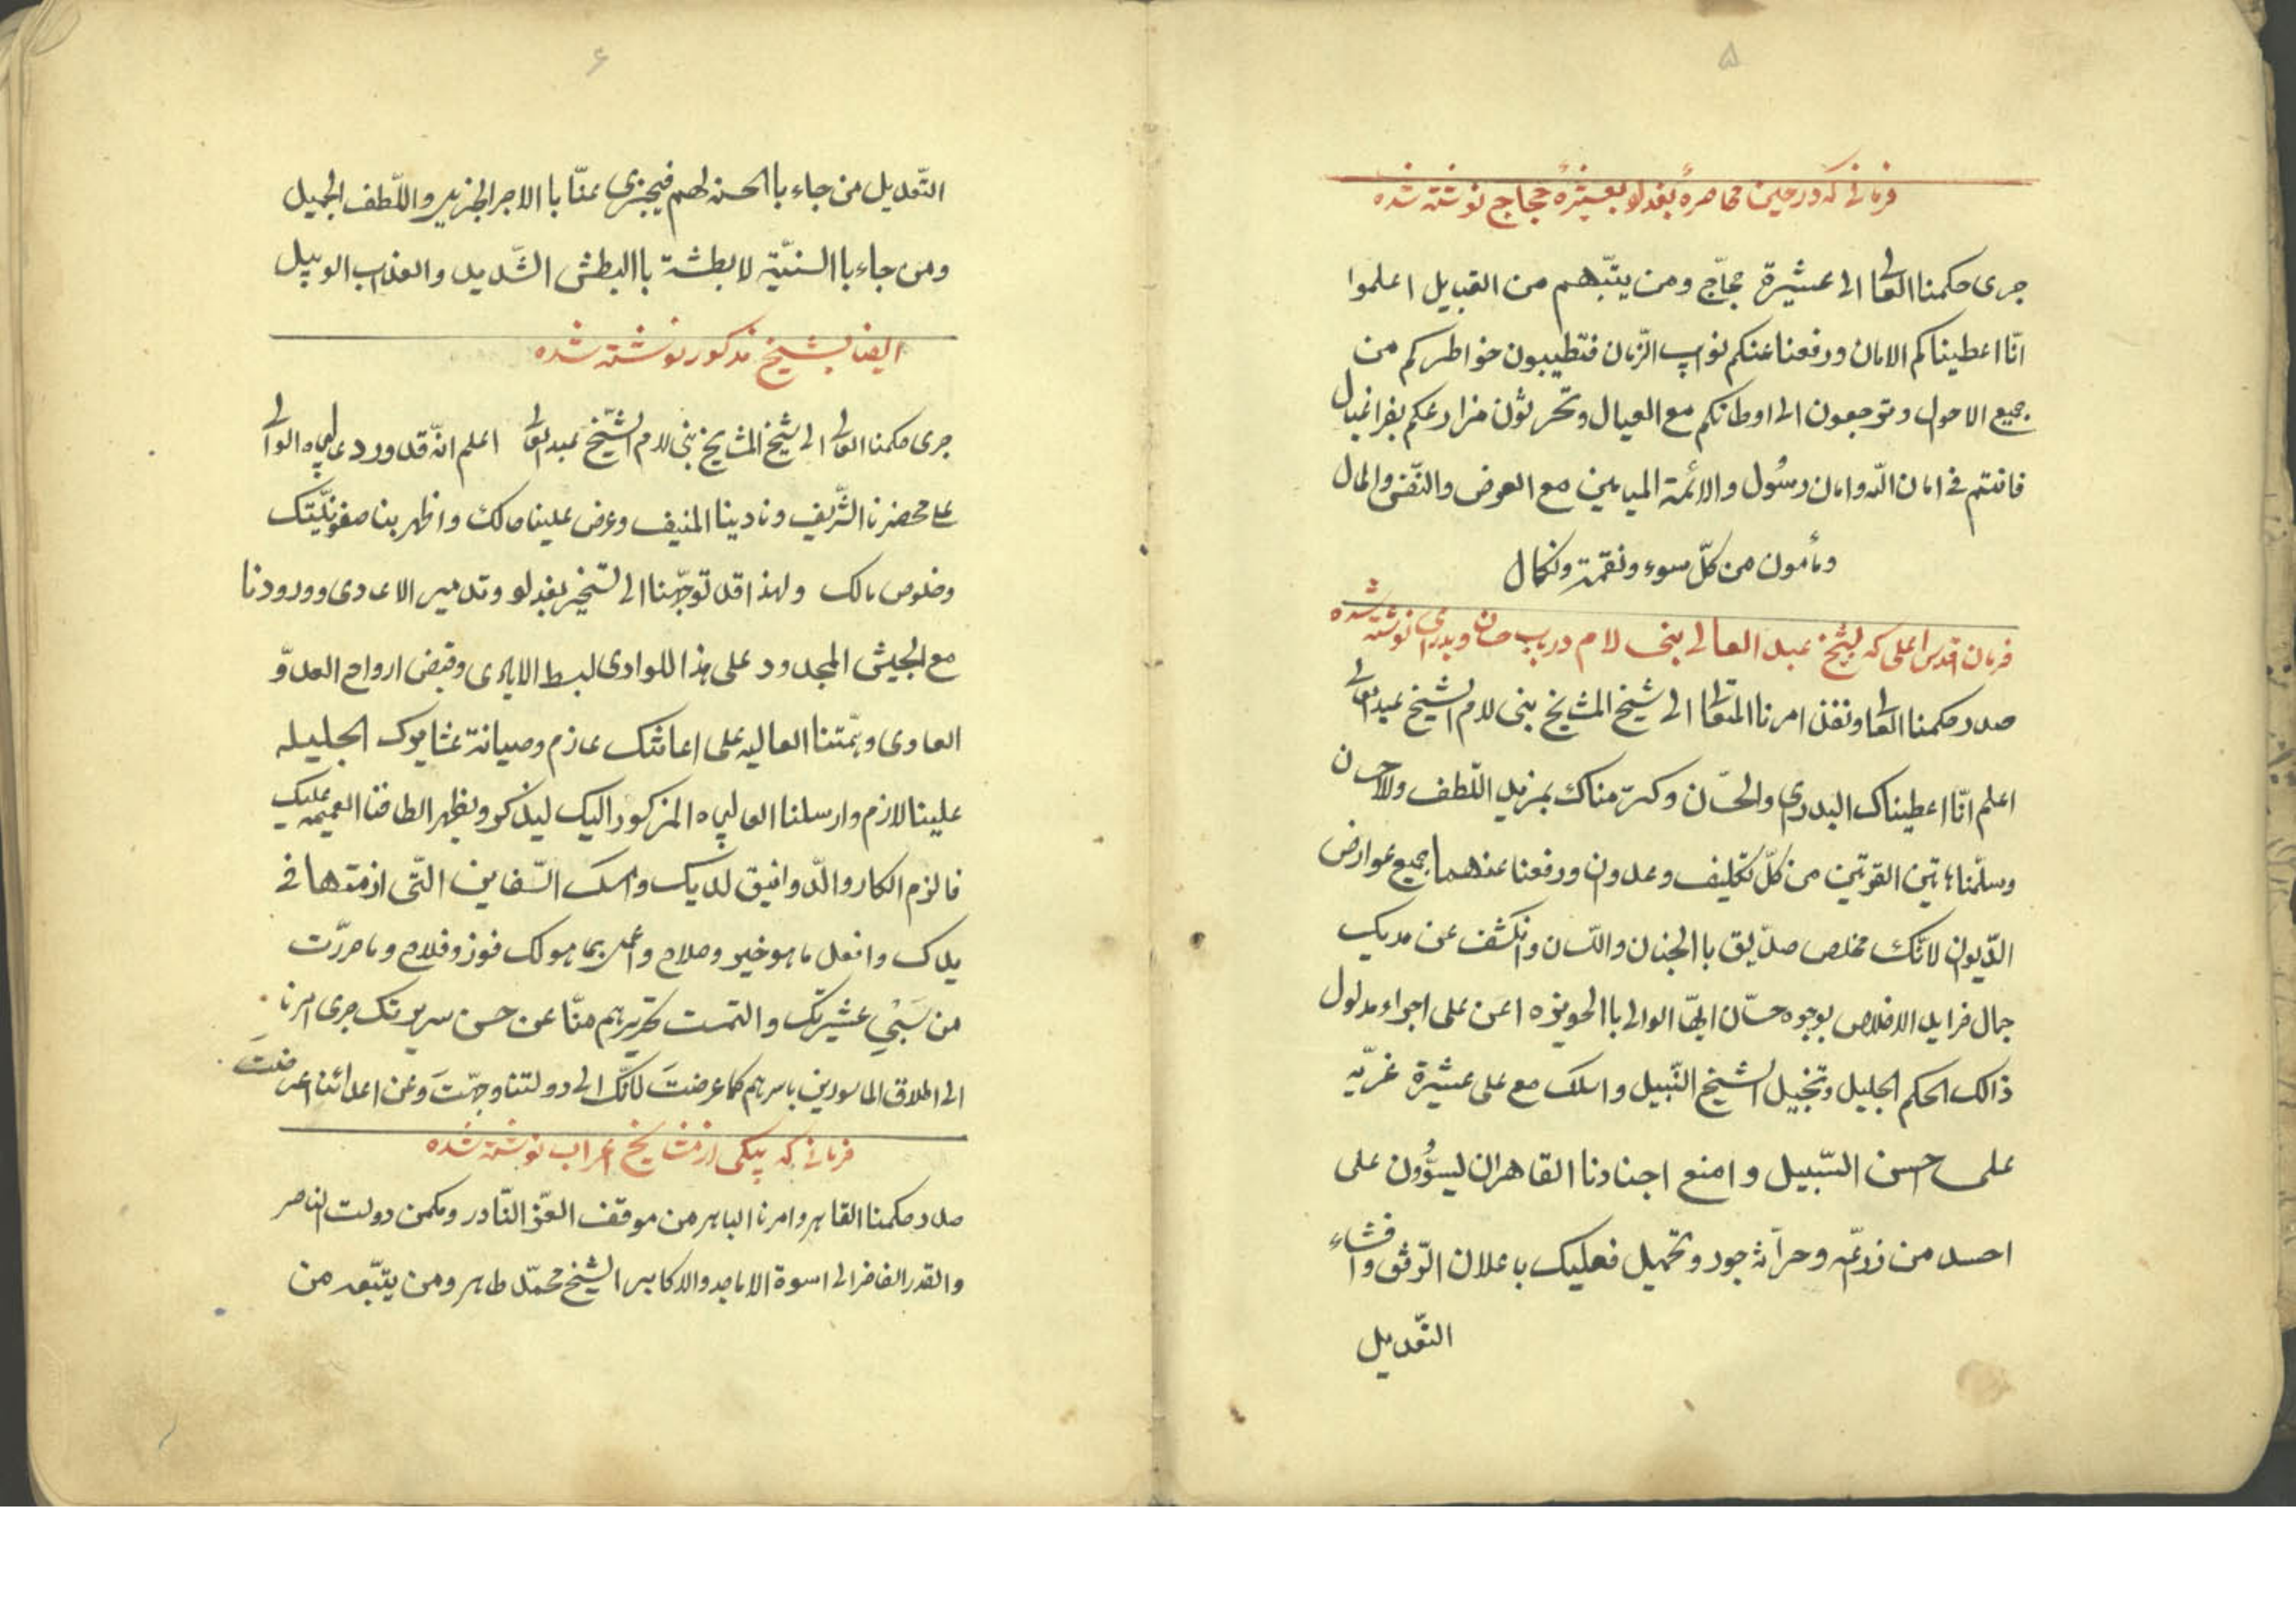 ۵
فرمانی که در حین محاصرهٔ بغداد بعشیرهٔ حجاج نوشته شده
جری حکمنا العالی الی عشیرة حجّاج ومن یتبّعهم من القبایل اعلموا
انّا اعطیناکم الامان ورفعنا عنکم نوایب الزّمان فتطیبون خواطرکم من
جمیع الاحوال وترجعون الی اوطانکم مع العیال وتحرثون مزارعکم بفراغبال
فانتم فی امان اللّه وامان رسُول والائمة المیامین مع العرض والنّفس والمال
ومأمون من کلّ سوء ونقمة ونکال
فرمان اقدس اعلی که بشیخ عبد العالی بنی لام در باب حسان وبدرای نوشته شده
صدر حکمنا العالی ونفذ امرنا المتعالی الی شیخ المشایخ بنی لام الشیخ عبدالعالی
اعلم انّا اعطیناک البدری والحسّان وکرّمناک بمزید اللّطف والاحسان
وسلّمنا هاتین القریتین من کلّ تکلیف وعدوان ورفعنا عنهما جمیع عوارض
الدّیوان لانّک مخلص صدّیق باالجنان واللّسان وانکشف عن مدیک
جمال فراید الاخلاص بوجوه حسّان ایهّا الوالی باالحویزه اعن علی اجراء مدلول
ذالک الحکم الجلیل وتبجیل الشیخ النّبیل واسلک مع علی عشیرة غزیّه
علی احسن السّبیل وامنع اجنادنا القاهران لیسؤُون علی
احد من زرعّه وحرآثه جور وتحمیل فعلیک باعلان الرّفق وافشاء
التّعدیل
۶
التّعدیل من جاء باالحسنه لهم فیجزی عنّا باالاجر الجزیل واللّطف الجمیل
ومن جاء باالسنیّة لابطشة باالبطش الشّدید والعذاب الوبیل
ایضا بشیخ مذکور نوشته شده
جری حکمنا العالی الی شیخ المشایخ بنی لام الشّیخ عبدالعالی اعلم انّه قد ورد عالیجاه الوالی
علی محضرنا الشّریف ونادینا المنیف وعرض علینا حالک واظهر بنا صفونیّتک
وخلوص بالک ولهذا قد توجّهنا الی لتسخیر بغداد وتدمیر الاعادی وورودنا
مع الجیش المجدود علی هذا الوادی لبسط الایادی وقبض ارواح العدوّ
العادی وهمّتنا العالیه علی اعانتک عازم وصیانة عشایرک الجلیله
علینا لازم وارسلنا العالیجاه المزکور الیک لیذکر ویظهر الطافنا العمیمه علیک
فالزم الکار والدّوانیق لدیک وامسک السّفاین الّتی ازمتها فی
یدک وافعل ما هو خیر وصلاح واعمل بما هو لک فوز وفلاح وما حرّرت
من سَبْیِ عشیرتک والتمست تحریرهم منّا عن حسن سریرتک جری امرنا
الی اطلاق الماسورین باسرهم کما عرضتَ لانّک الی دولتنا وجهّتَ وعن اعدائنا اعرضتَ
فرمانی که بیکی از مشایخ اعراب نوشته شده
صدر حکمنا القاهر وامرنا الباهر من موقف العزّ النّادر ومکمن دولت الناصر
والقدر الفاخر الی اسوة الاماجد والاکابر الشیخ محمّد طاهر ومن یتبّعه من